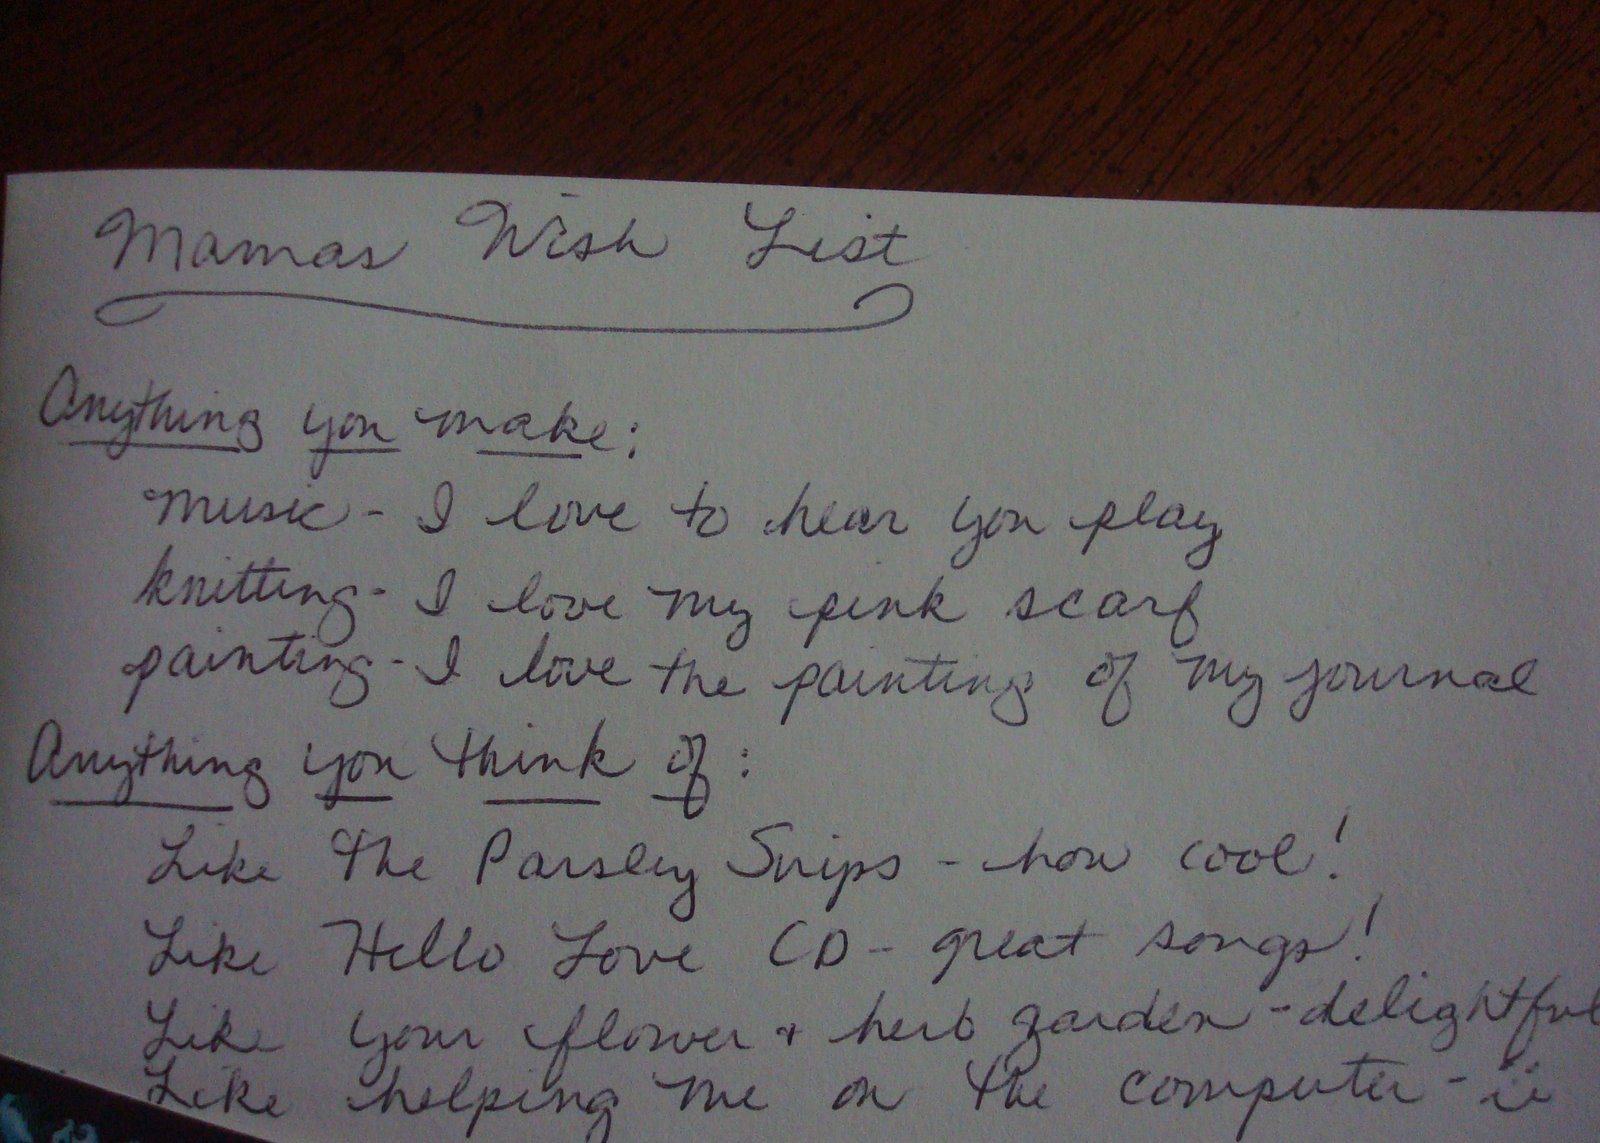 Mamas Wish List
Anything you make:
music - I love to hear you play
knitting - I love my pink scarf
painting - I love the painting of my journal
Anything you think of:
Like the Parsley Snips - how cool!
Like Hello Love CD - great songs!
Like your flower + herb garden - delightful
Like helping me on the computer -